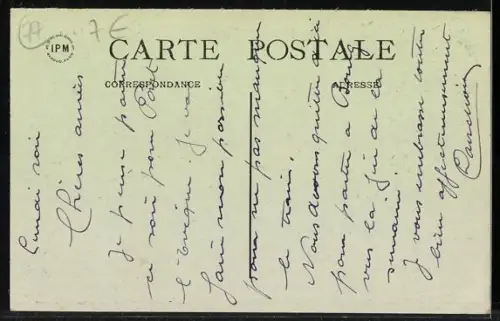 77
7 €
IPM
CARTE POSTALE
CORRESPONDANCE
ADRESSE
Lundi soir
Chères amies
Je pense partir
ce soir pour Pont
l'Evêque. Je vais
faire mon possible
pour ne pas manquer
le train.
Nous devons quitter d'ici
pour partir à
vers la fin de la
semaine.
Je vous embrasse toutes
bien affectueusement